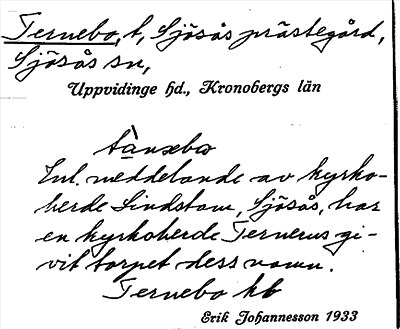 Ternebo, t, Sjösås prästegård,
Sjösås sn,
Uppvidinge hd., Kronobergs län
tà̱nəbo
Enl. meddelande av kyrko-
herde Lindstam, Sjösås, har
en kyrkoherde Ternerus gi-
vit torpet dess namn.
Ternebo kb
Erik Johannesson 1933